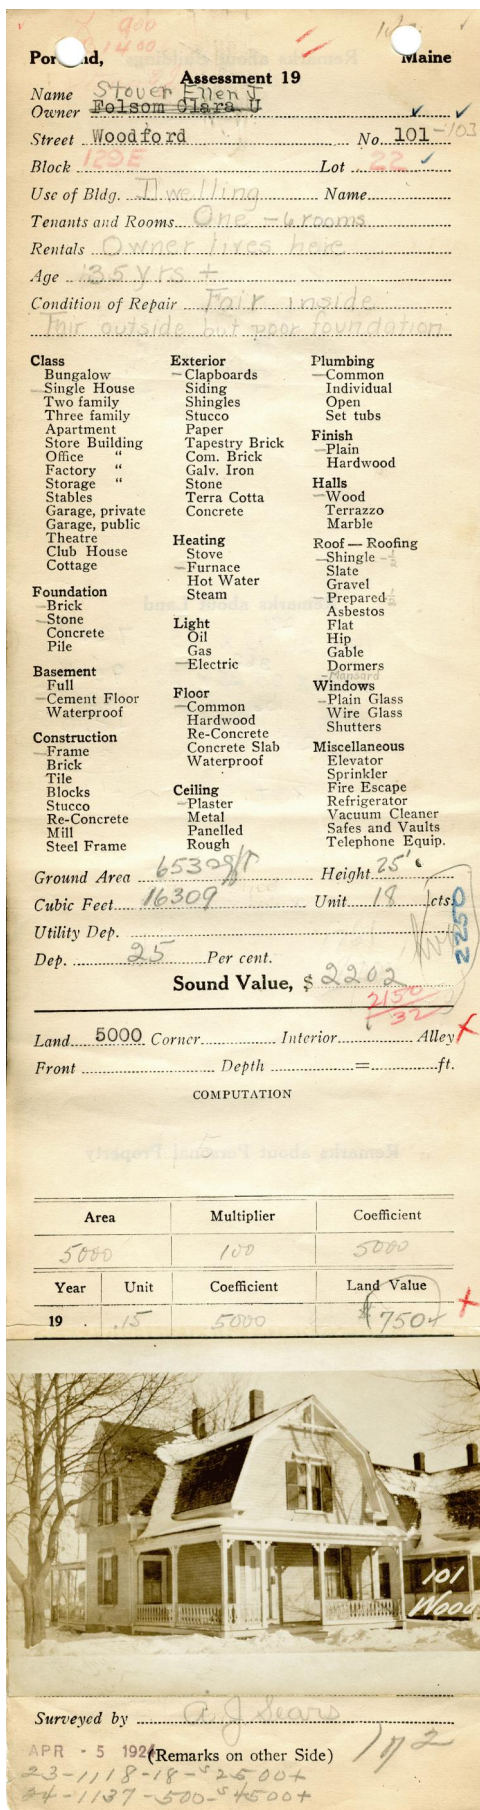 900
1400
Portland, Maine
Assessment 19
Name Stover Ellen J
Owner Folsom Clara U
Street Woodford No. 101-103
Block 129E Lot 22
Use of Bldg. Dwelling Name
Tenants and Rooms One - 6 rooms
Rentals Owner lives here
Age 35 yrs +
Condition of Repair Fair inside
Fair outside but poor foundation
Class
Bungalow
Single House
Two family
Three family
Apartment
Store Building
Office "
Factory "
Storage "
Stables
Garage, private
Garage, public
Theatre
Club House
Cottage
Foundation
Brick
Stone
Concrete
Pile
Basement
Full
Cement Floor
Waterproof
Construction
Frame
Brick
Tile
Blocks
Stucco
Re-Concrete
Mill
Steel Frame
Exterior
Clapboards
Siding
Shingles
Stucco
Paper
Tapestry Brick
Com. Brick
Galv. Iron
Stone
Terra Cotta
Concrete
Heating
Stove
Furnace
Hot Water
Steam
Light
Oil
Gas
Electric
Floor
Common
Hardwood
Re-Concrete
Concrete Slab
Waterproof
Ceiling
Plaster
Metal
Panelled
Rough
Plumbing
Common
Individual
Open
Set tubs
Finish
Plain
Hardwood
Halls
Wood
Terrazzo
Marble
Roof — Roofing
Shingle - ½
Slate
Gravel
Prepared ½
Asbestos
Flat
Hip
Gable
Dormers
-Mansard
Windows
Plain Glass
Wire Glass
Shutters
Miscellaneous
Elevator
Sprinkler
Fire Escape
Refrigerator
Vacuum Cleaner
Safes and Vaults
Telephone Equip.
Ground Area 653 sq ft Height 25'
Cubic Feet 16309 Unit 18 cts.
Utility Dep.
2250
Dep. 25 Per cent.
Sound Value, $ 2202
2150
32
Land 5000 Corner Interior Alley
Front Depth = ft.
COMPUTATION
Area Multiplier Coefficient
5000 100 5000
Year Unit Coefficient Land Value
19 .15 5000 $750+
101
Wood
Surveyed by A. J. Sears
APR - 5 192
(Remarks on other Side)
23-1118-18-$2500+
24-1137-500-$4500+